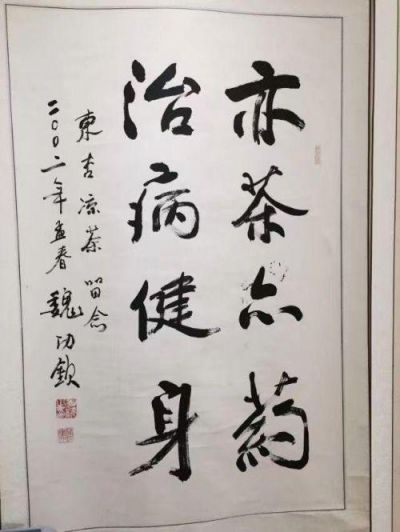 亦茶亦藥
治病健身
東杏凉茶 留念
二〇〇二年孟春 魏功欽